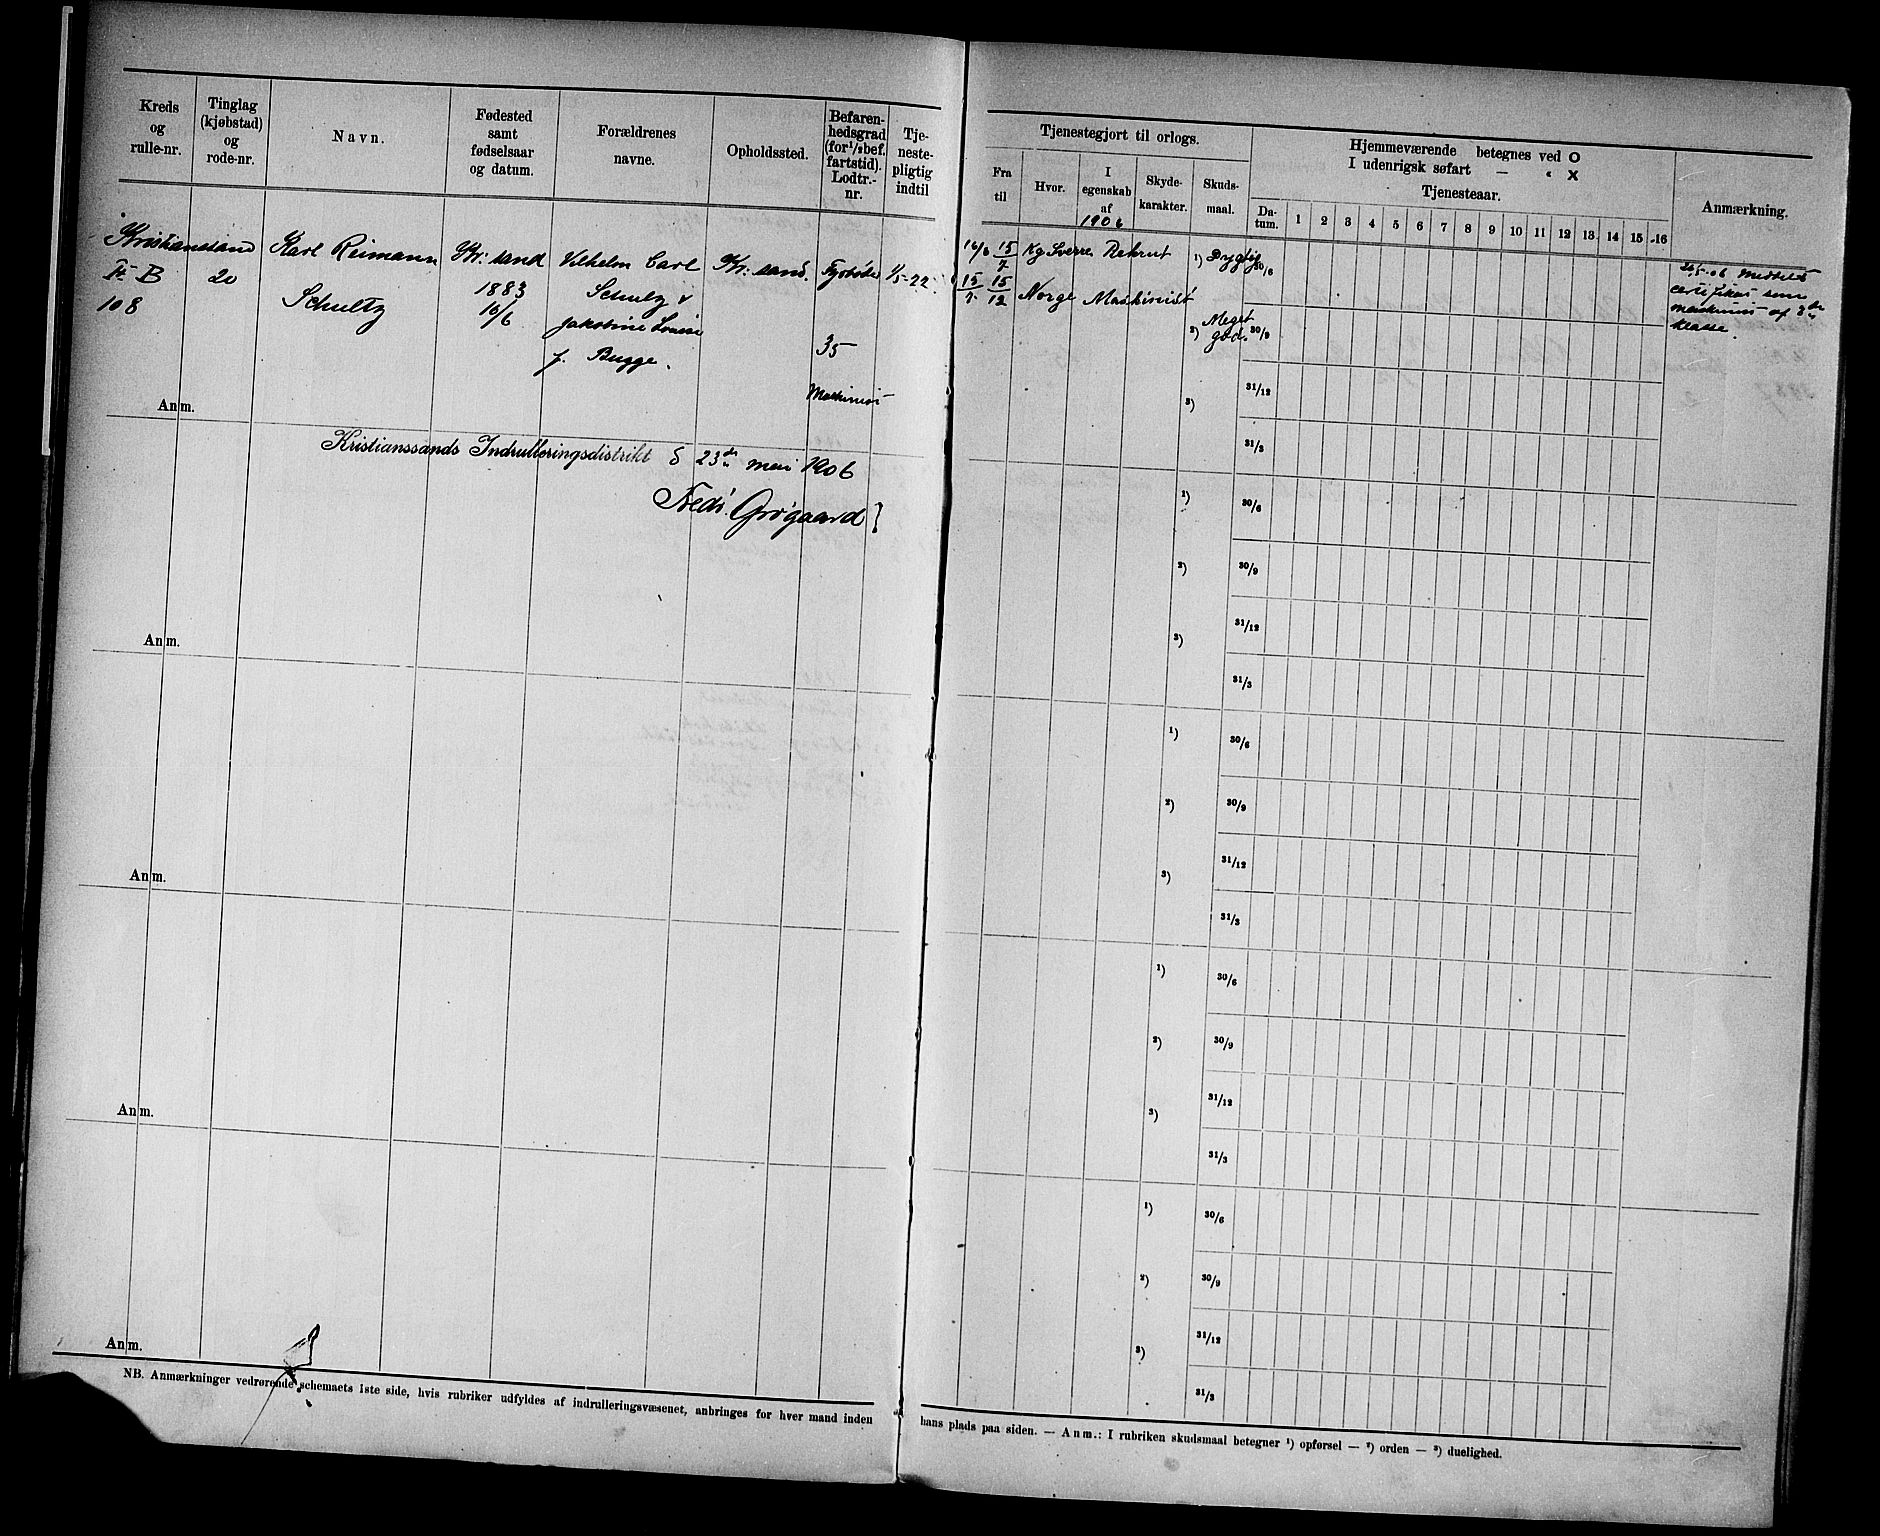 Kreds og rulle-nr.
Tinglag (kjøbstad) og rode-nr.
Navn.
Fødested samt fødselsaar og datum.
Forældrenes navne.
Opholdssted.
Befaren-hedsgrad (for 1/2 bef. fartstid). Lodtr.-nr.
Tje-neste-pligtig indtil
Tjenestegjort til orlogs.
Fra til
Hvor.
I egenskab af
Skyde-karakter.
Skuds-maal.
Hjemmeværende betegnes ved O
I udenrigsk søfart — " X
Tjenesteaar.
Da-tum.
1 2 3 4 5 6 7 8 9 10 11 12 13 14 15 16
Anmærkning.
1906
Kristianssand
II B
108
20
Karl Reimann
Schultz
Kr: sand
1883
16/6
Vilhelm Carl
Schulz &
Jakobine Louise
f. Bugge.
Kr: sand.
Fyrbøder
35
Maskinist
1/5-22
16/6 15/7 Kg Sverre Rekrut
15/7 15/12 Norge Maskinist
1) Dygtig
2) Meget god.
3)
30/6
30/9
31/12
31/3
26/5-06 meddelt
certifikat som
maskinist af 3de
klasse.
Anm.
Kristianssands Indrulleringsdistrikt d 23de mai 1906
Fredr. Grøgaard
1)
30/6
2)
30/9
3)
31/12
31/3
Anm.
1)
30/6
2)
30/9
3)
31/12
31/3
Anm.
1)
30/6
2)
30/9
3)
31/12
31/3
Anm.
1)
30/6
2)
30/9
3)
31/12
31/3
Anm.
NB. Anmærkninger vedrørende schemaets 1ste side, hvis rubriker udfyldes af indrulleringsvæsenet, anbringes for hver mand inden
hans plads paa siden. — Anm.: I rubriken skudsmaal betegner ¹) opførsel — ²) orden — ³) duelighed.